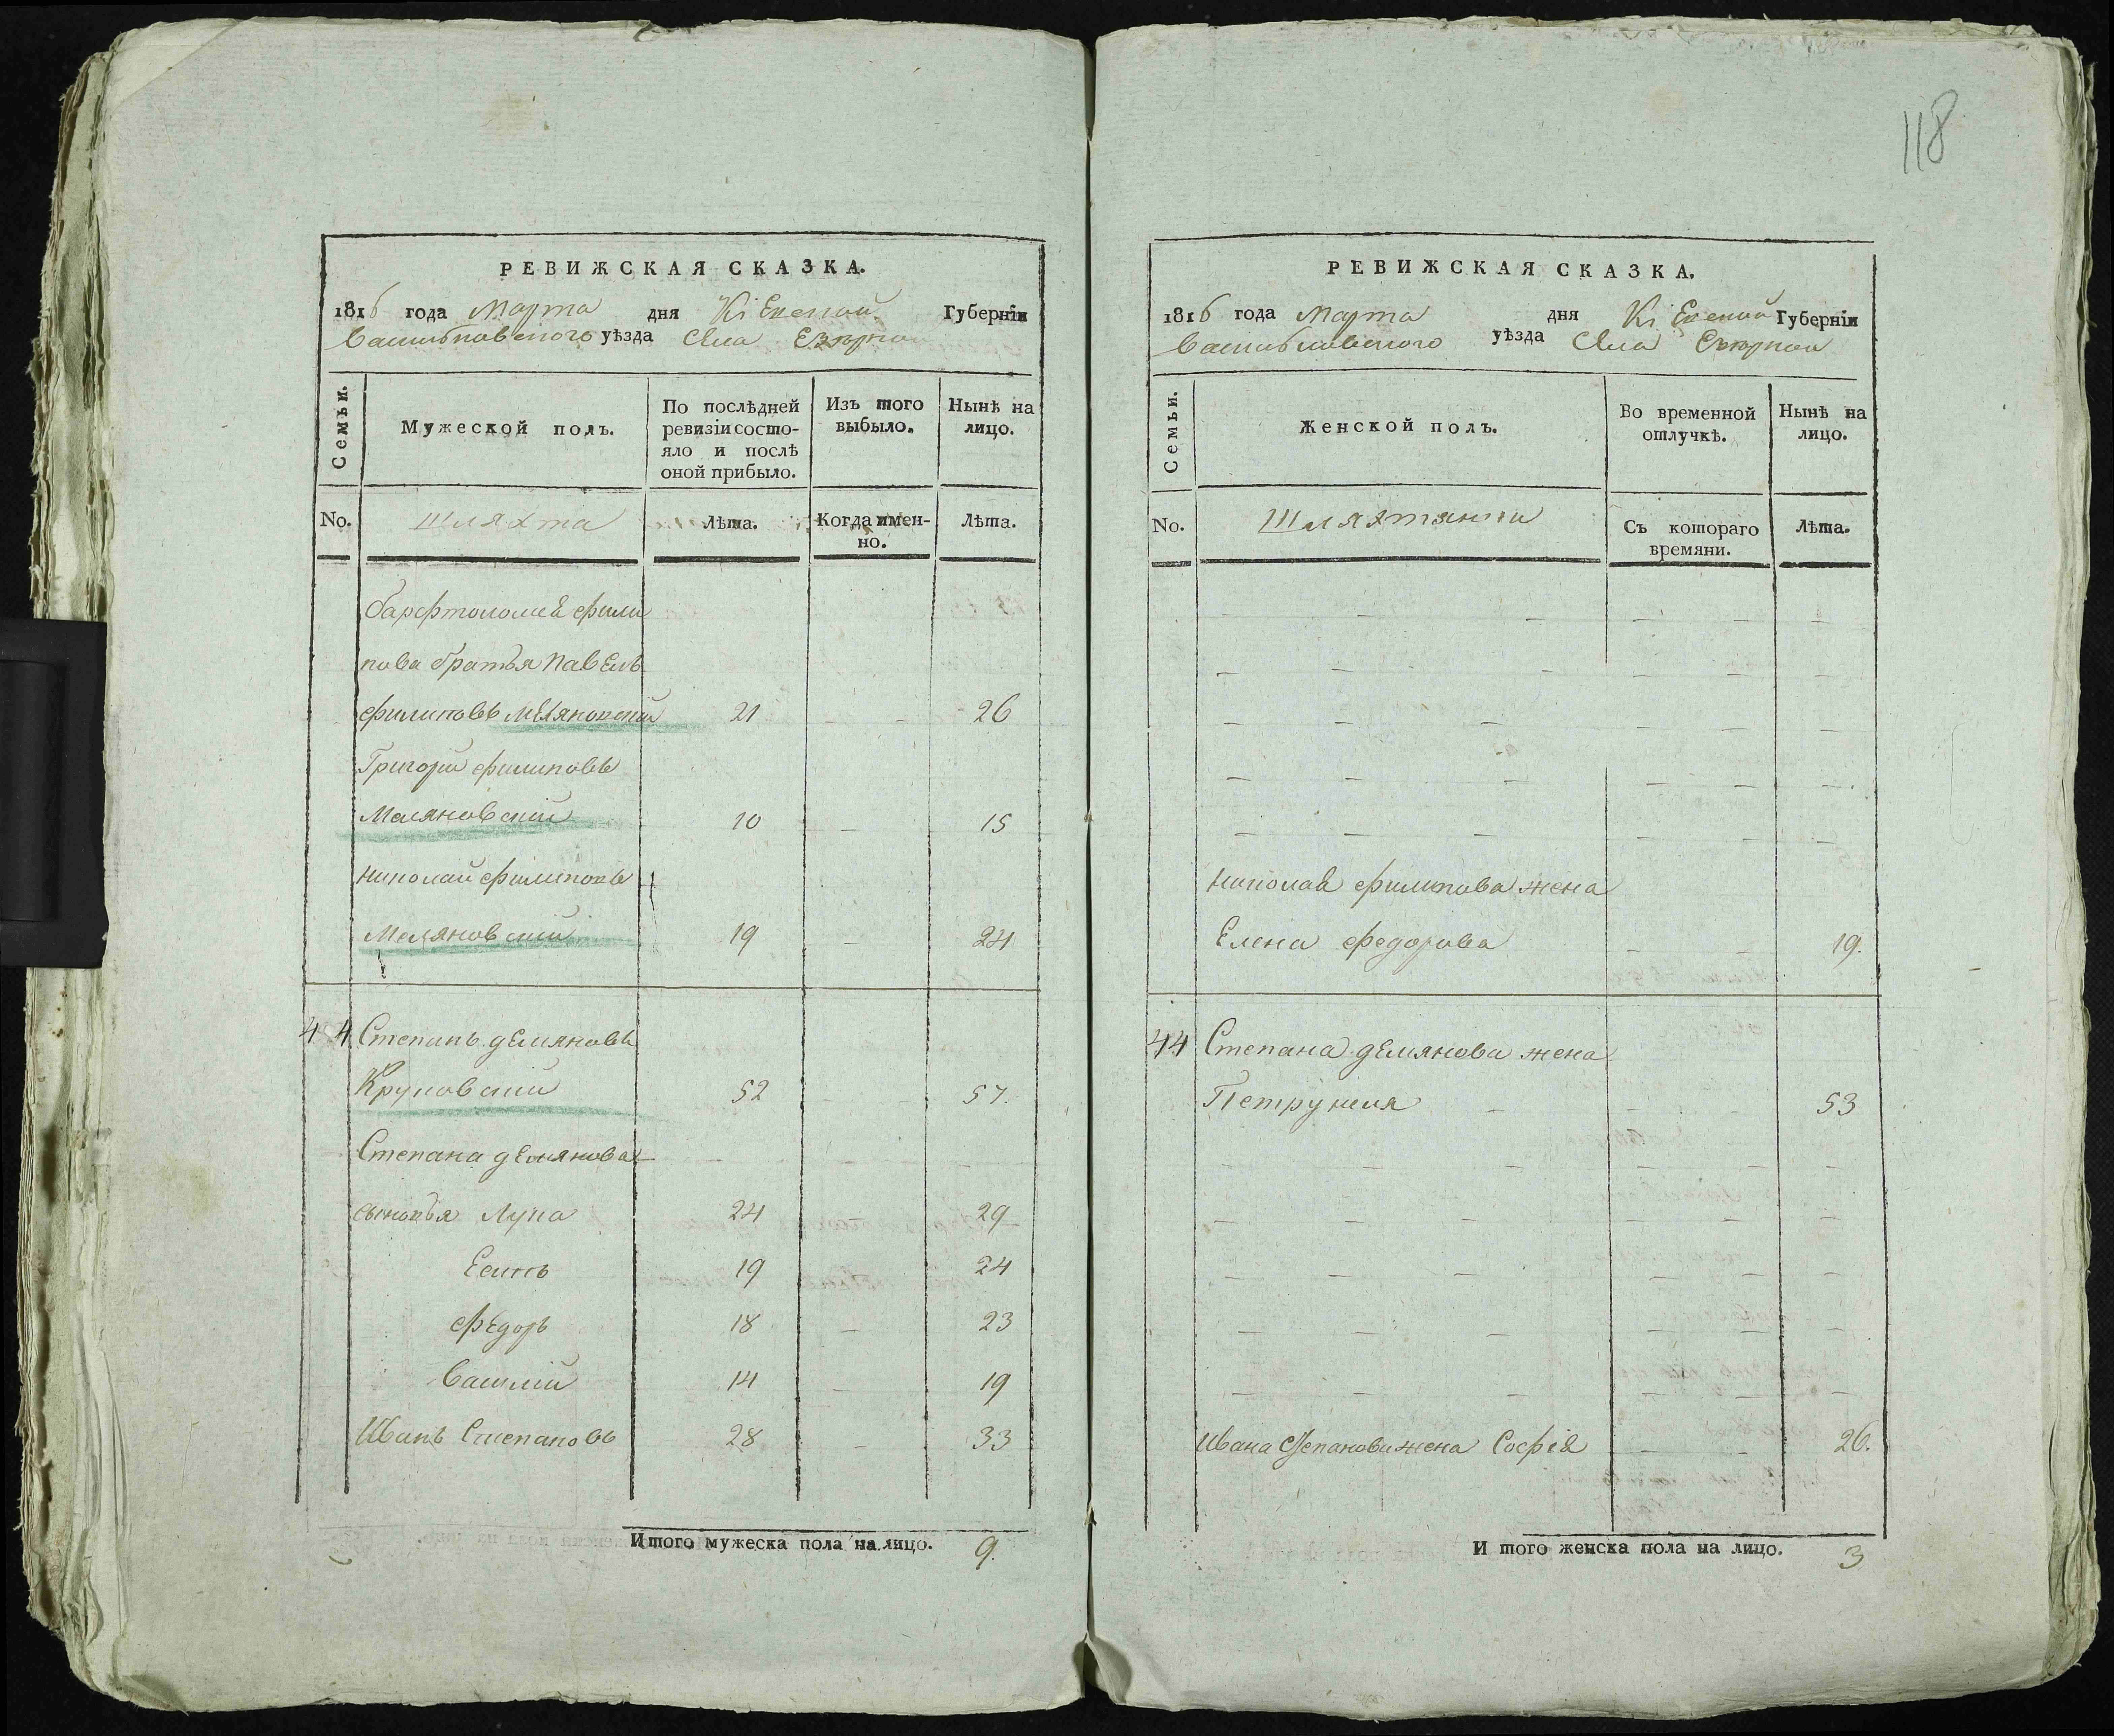 118
РЕВИЖСКАЯ СКАЗКА.
1816 года Марта дня Кіевской Губерніи
Васильковского уѣзда Села Езѣрной
Семьи.
Мужеской полъ.
По послѣдней ревизіи состояло и послѣ оной прибыло.
Изъ того выбыло.
Нынѣ на лицо.
No.
Шляхта
Лѣта.
Когда именно.
Лѣта.
Варфтоломея Фили
пова братья Павелъ
Филиповъ Меляновскій 21 - - 26
Григорій Филиповъ
Меляновскій 10 - 15
Николай Филиповъ
Меляновскій 19 - 24
44 Степанъ Демяновъ
Круповскій 52 - - 57.
Степана Демянова - - - - -
сыновья Лупа 24 29
Есипъ 19 24
Федоръ 18 - 23
Василій 14 - 19
Иванъ Степановъ 28 - 33
Итого мужеска пола на лицо. 9.
РЕВИЖСКАЯ СКАЗКА.
1816 года Марта дня Кіевской Губерніи
Васильковского уѣзда Села Езѣрной
Семьи.
Женской полъ.
Во временной отлучкѣ.
Нынѣ на лицо.
No.
Шляхтянки
Съ котораго времяни.
Лѣта.
Николая Филипова жена
Елена Федорова - - 19.
44 Степана Демянова жена
Петрунеля - - - 53
Ивана Степанова жена Софія - - 26.
Итого женска пола на лицо. 3